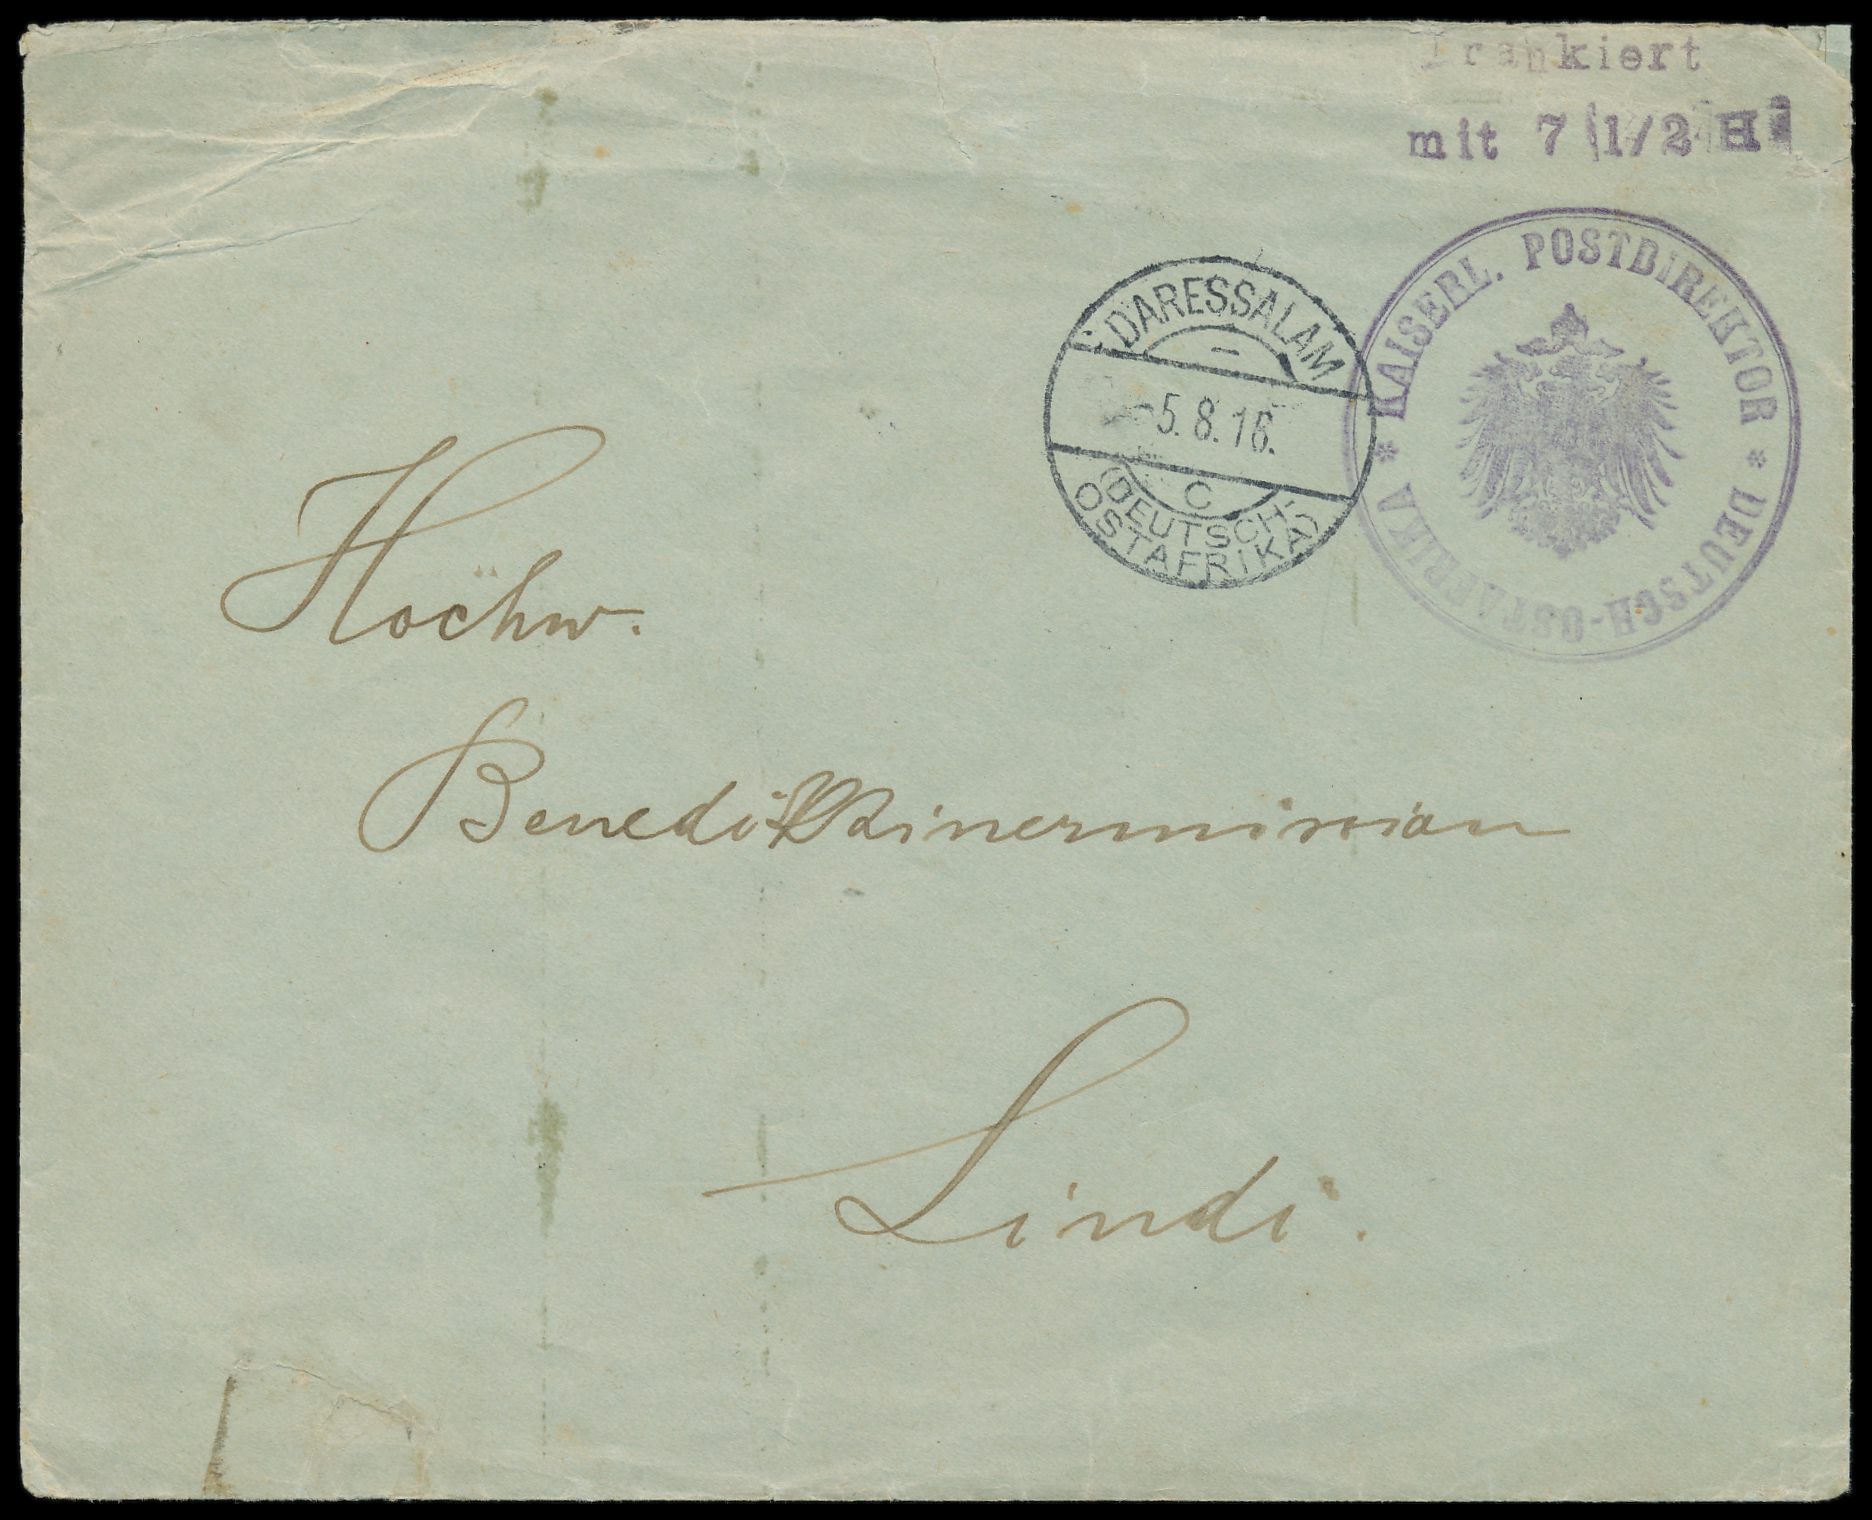 Frankiert
mit 7 1/2 H
* KAISERL. POSTDIREKTOR * DEUTSCH-OSTAFRIKA
DARESSALAM
5.8.16.
C
(DEUTSCH-
OSTAFRIKA)
Hochw.
Benediktinermission
Lindi.